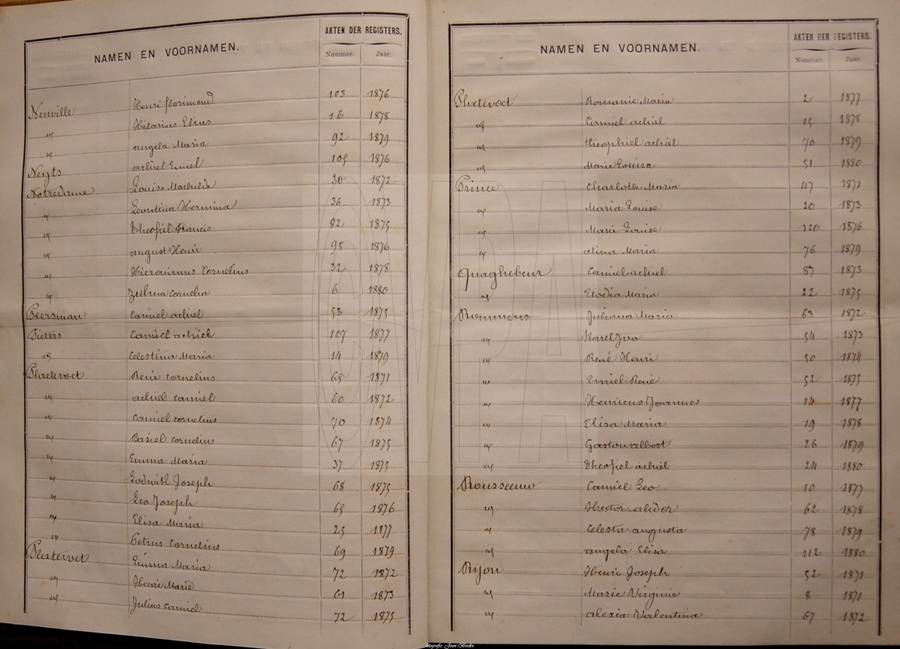 NAMEN EN VOORNAMEN. AKTEN DER REGISTERS.
Nummer. Jaar.
Neuville Henri florimond 103 1876
" Hilarius Elius 16 1878
" angela Maria 92 1879
Neyts achiel Emiel 105 1876
Notredame Louise Mathilde 30 1872
" Leontina Hermina 36 1873
" theofiel Francis 92 1875
" august Henri 95 1876
" Hieronimus Cornelius 32 1878
" Zulma Cornelia 6 1880
Peersman Camiel achiel 53 1875
Pieters Camiel achiel 107 1877
" Celestina Maria 14 1879
Plaetevoet René Cornelius 65 1871
" achiel Camiel 60 1872
" Camiel Cornelius 70 1874
" Basiel Cornelius 67 1875
" Emma Maria 37 1875
" Lodewijk Joseph 68 1875
" Leo Joseph 65 1876
" Elisa Maria 25 1877
" Petrus Cornelius 69 1879
Platevoet Emma Maria 72 1872
" Henri Marie 61 1873
" Julius Camiel 72 1875
NAMEN EN VOORNAMEN. AKTEN DER REGISTERS.
Nummer. Jaar.
Platevoet Romanie Maria 2 1877
" Camiel achiel 15 1878
" theophiel achiel 70 1879
" Marie Louisa 51 1880
Prince Charlotte Maria 47 1871
" Maria Louise 20 1873
" Marie Louise 120 1876
" alina Maria 76 1879
Quaghebeur Camiel achiel 87 1873
" Elodia Maria 22 1875
Rommens Juliana Maria 63 1872
" Karel Ivo 54 1873
" René Henri 50 1874
" Emiel René 52 1875
" Henricus Joannes 14 1877
" Elisa Maria 19 1878
" Gaston albert 26 1879
" theofiel achiel 24 1880
Rousseeuw Camiel Leo 10 1877
" Hector alidor 62 1878
" Celesta augusta 78 1879
" angela Elisa 112 1880
Ryon Henri Joseph 52 1871
" Marie Virginie 8 1871
" alexia Valentina 67 1872